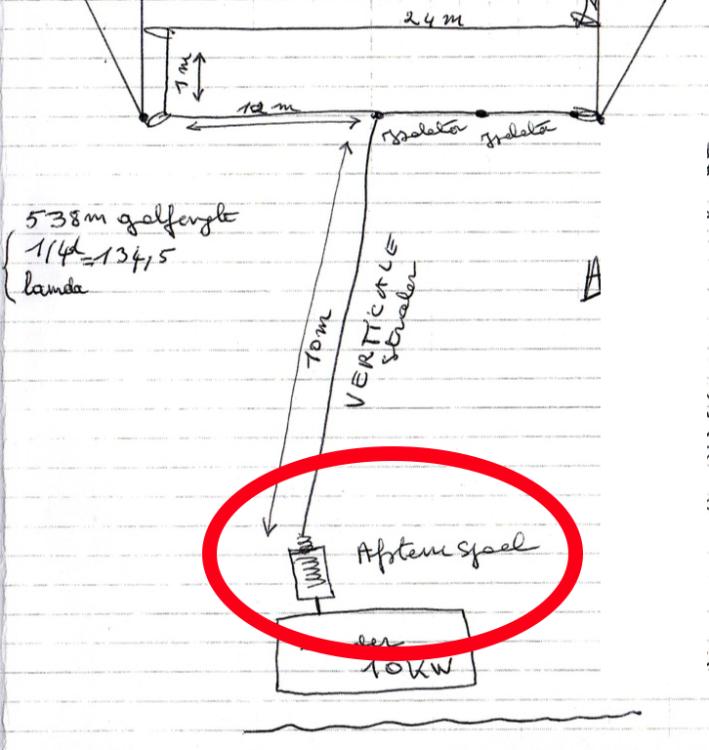 24 m
1 m
12 m
Isolator Isolator
538m golflengte
1/4 = 134,5
lamda
10m
VERTICALE
straler
A
Afstem Spoel
10KW